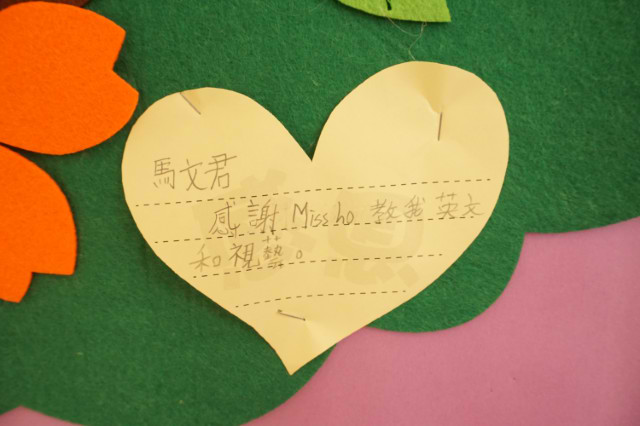 馬文君
感謝 Miss ho 教我 英文
和視藝。